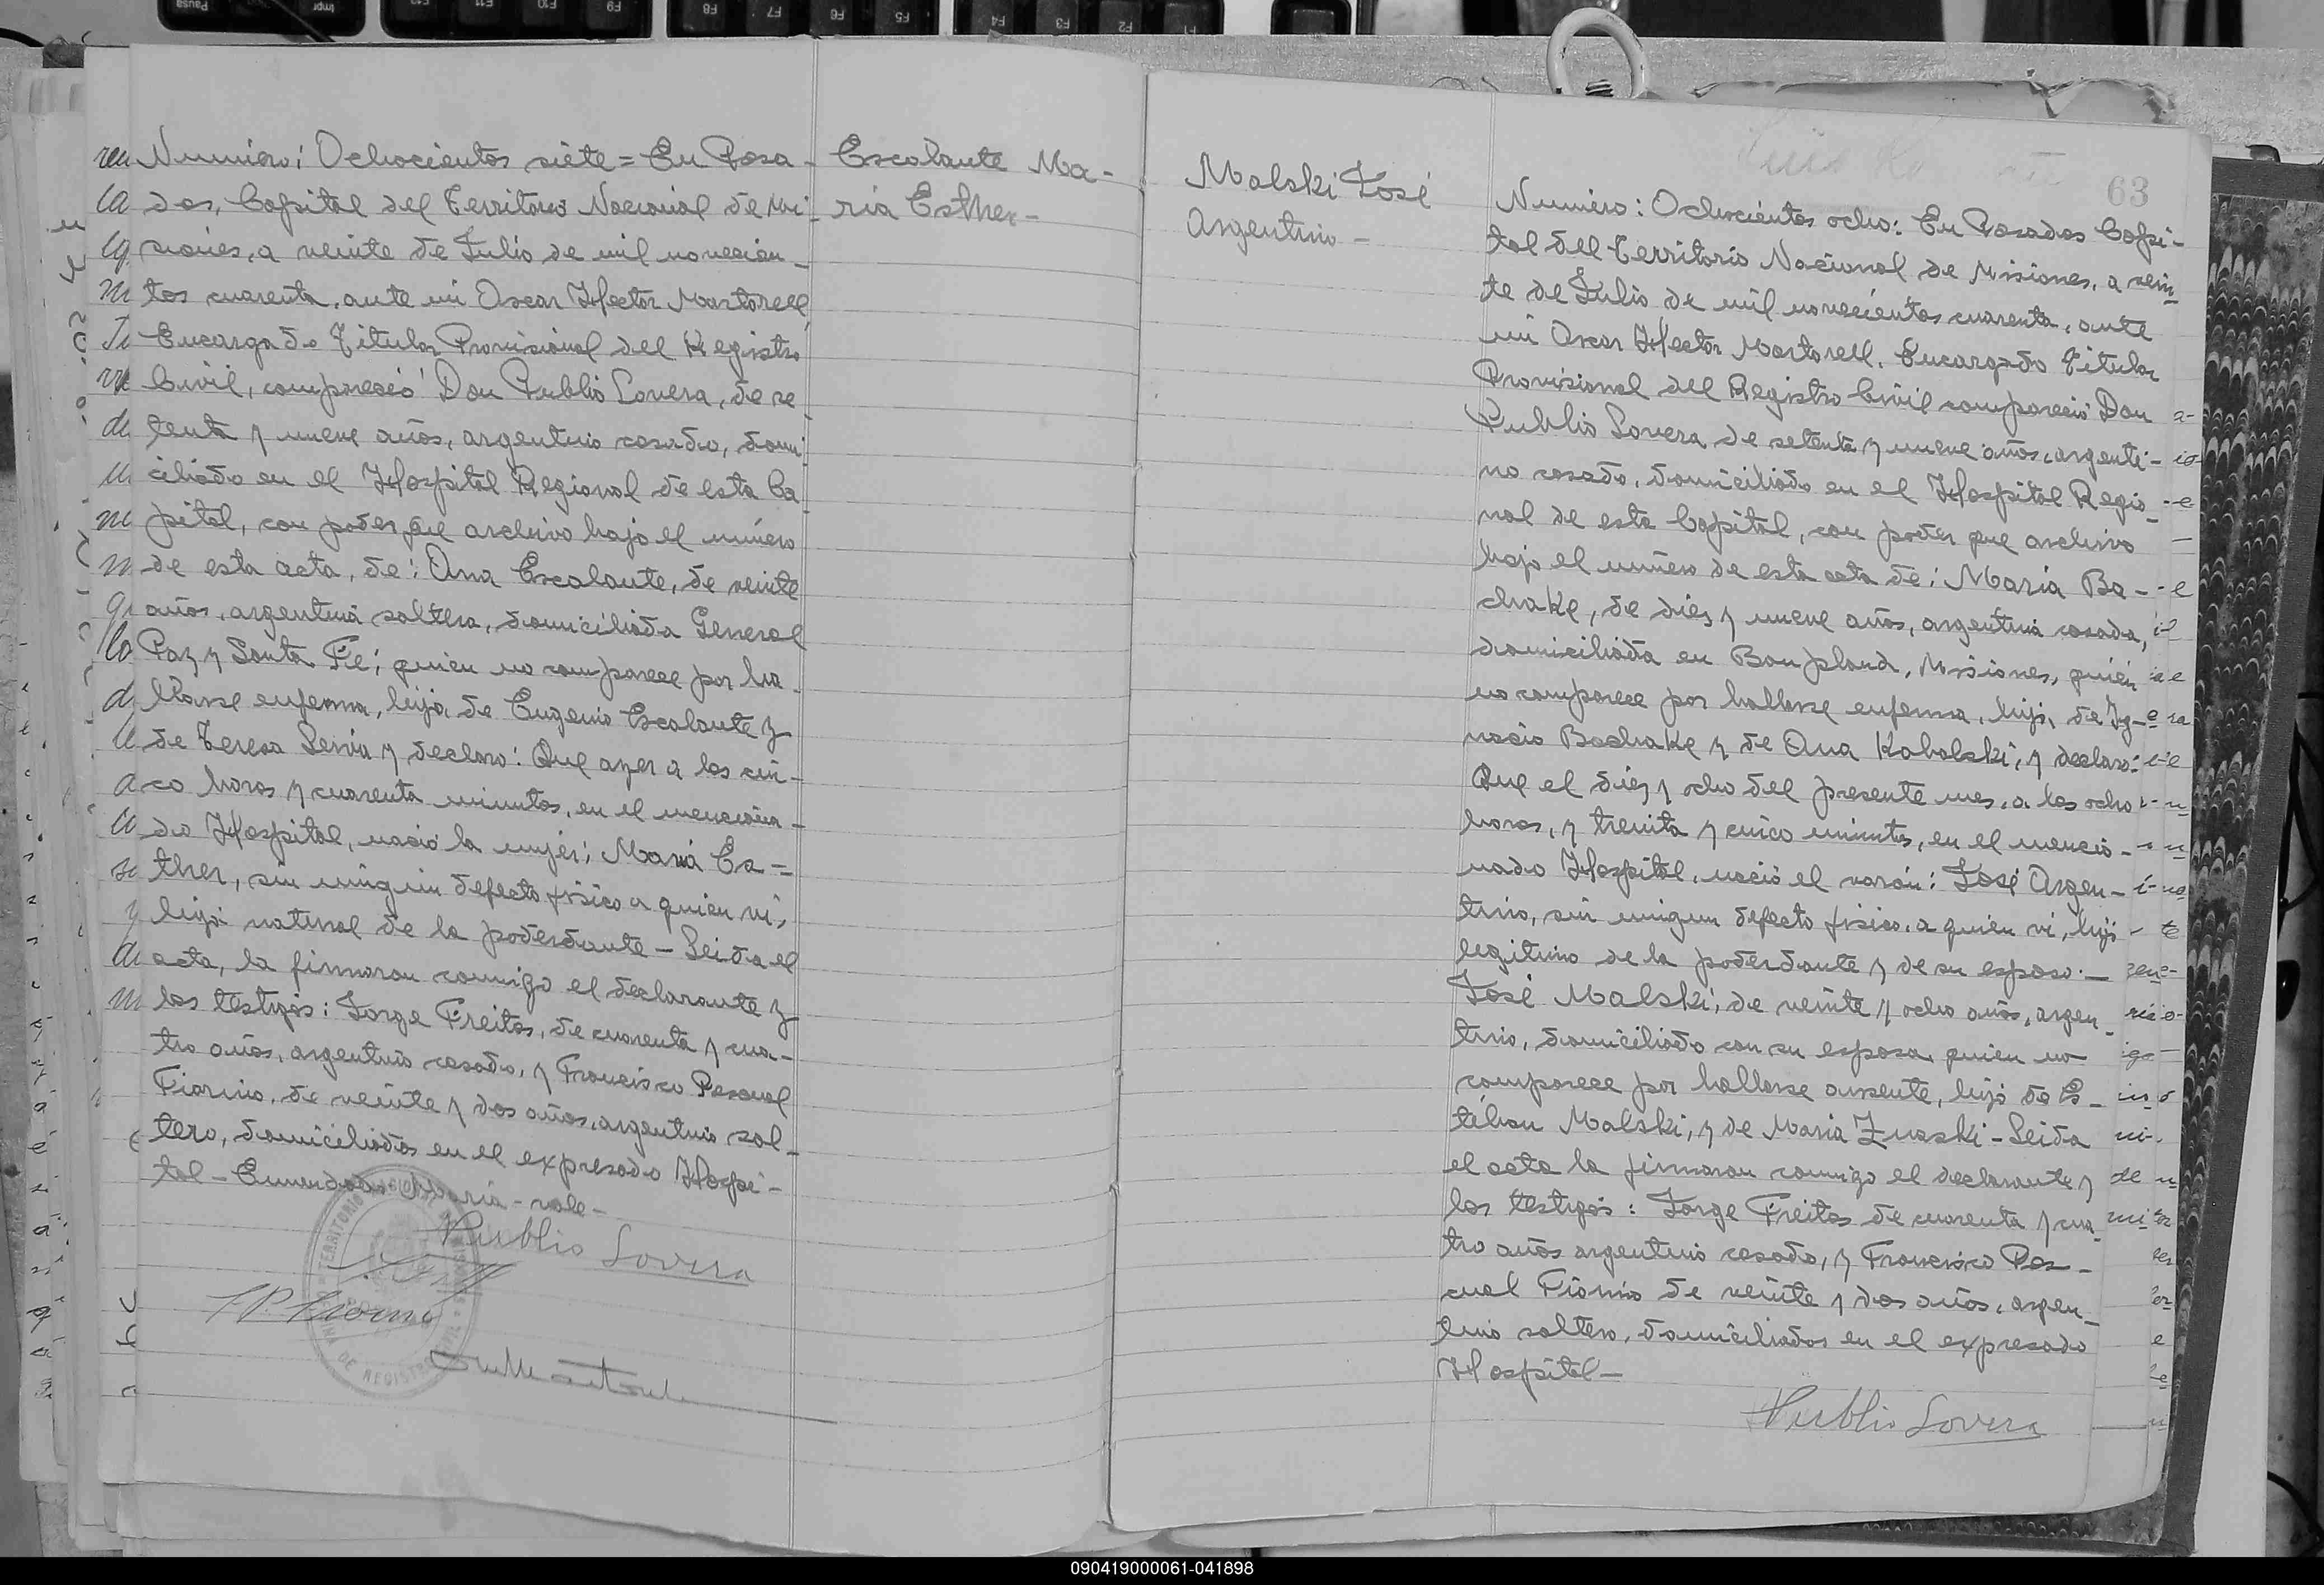 Numero: Ochocientos siete = En Posa-
das, Capital del Territorio Nacional de Mi-
siones, a veinte de Julio de mil novecien-
tos cuarenta, ante mi Oscar Hector Martorell
Encargado Titular Provisional del Registro
Civil, compareció Don Publio Lovera, de se-
tenta y nueve años, argentino casado, domi-
ciliado en el Hospital Regional de esta Ca-
pital, con poder que archivo bajo el número
de esta acta, de: Ana Escalante, de veinte
años, argentina soltera, domiciliada General
Paz y Santa Fé; quien no comparece por ha-
llarse enferma, hija de Eugenio Escalante y
de Teresa y declaro: Que ayer a las cin-
co horas y cuarenta minutos, en el menciona-
do Hospital, nació la mujer: Maria Es=
ther, sin ningun defecto fisico a quien vi,
hija natural de la poderdante - Leida el
acta, la firmaron conmigo el declarante y
los testigos: Jorge Freitas, de cuarenta y cua-
tro años, argentino casado, y Francisco Pascual
Fiorino, de veinte y dos años, argentino sol-
tero, domiciliados en el expresado Hospi-
tal - Enmendado: Maria - vale -
Publio Lovera
F.P. Fiorino
Escalante Ma-
ria Esther -
Malski José
Argentino -
63
Numero: Ochocientos ocho: En Posadas Capi-
tal del Territorio Nacional de Misiones, a vein-
te de Julio de mil novecientos cuarenta, ante
mi Oscar Hector Martorell, Encargado Titular
Provisional del Registro Civil compareció Don
Publio Lovera de setenta y nueve años, argenti-
no casado, domiciliado en el Hospital Regio-
nal de esta Capital, con poder que archivo
bajo el número de esta acta de: Maria Ba-
chake, de diez y nueve años, argentina casada,
domiciliada en Bonpland, Misiones, quién
no comparece por hallarse enferma, hija de Ig-
nacio Bachake y de Ana Kobalski, y declaró:
Que el diez y ocho del presente mes, a las ocho
horas, y treinta y cinco minutos, en el mencio-
nado Hospital, nació el varón: José Argen-
tino, sin ningun defecto fisico, a quien vi, hijo
legitimo de la poderdante y de su esposo: -
José Malski, de veinte y ocho años, argen-
tino, domiciliado con su esposa, quien no
comparece por hallarse ausente, hijo de Es-
téban Malski, y de Maria Znaski - Leida
el acta la firmaron conmigo el declarante y
los testigos: Jorge Freitas de cuarenta y cua-
tro años argentino casado, y Francisco Pas-
cual Fiorino de veinte y dos años, argen-
tino soltero, domiciliados en el expresado
Hospital -
Publio Lovera
090419000061-041898